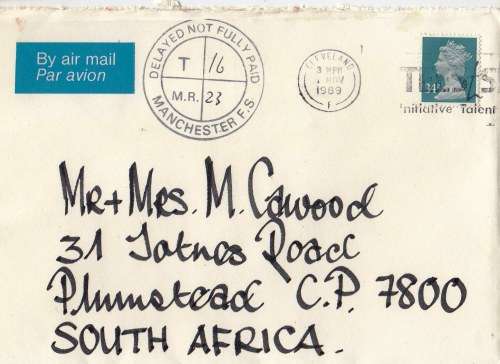 By air mail
Par avion
DELAYED NOT FULLY PAID
T 16
M.R. 23
MANCHESTER F.S
CLEVELAND
3 PM
NOV
1989
F
34
Initiative Talent
Mr + Mrs. M. Cawood
31 Totnes Road
Plumstead C.P. 7800
SOUTH AFRICA.